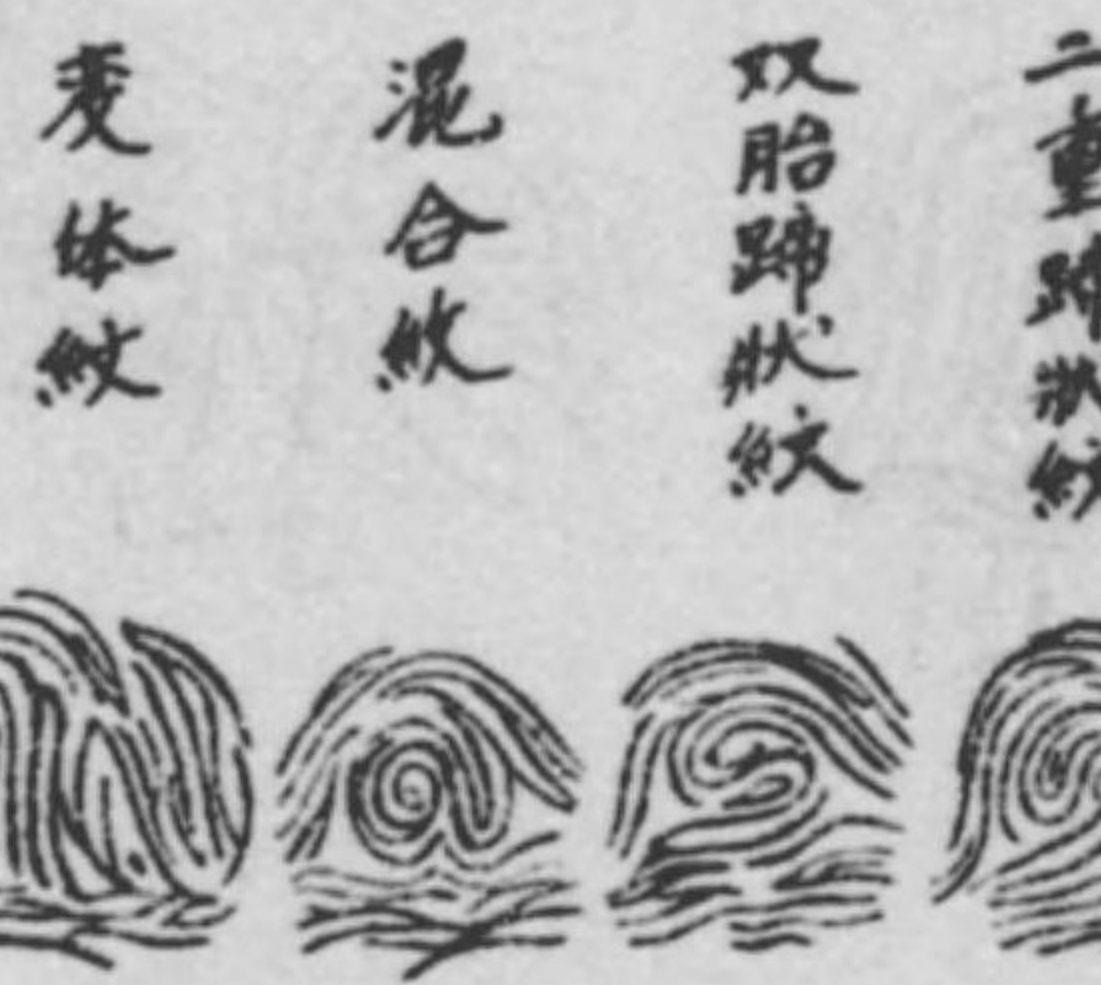 二重蹄状紋
双胎蹄状紋
混合紋
変体紋